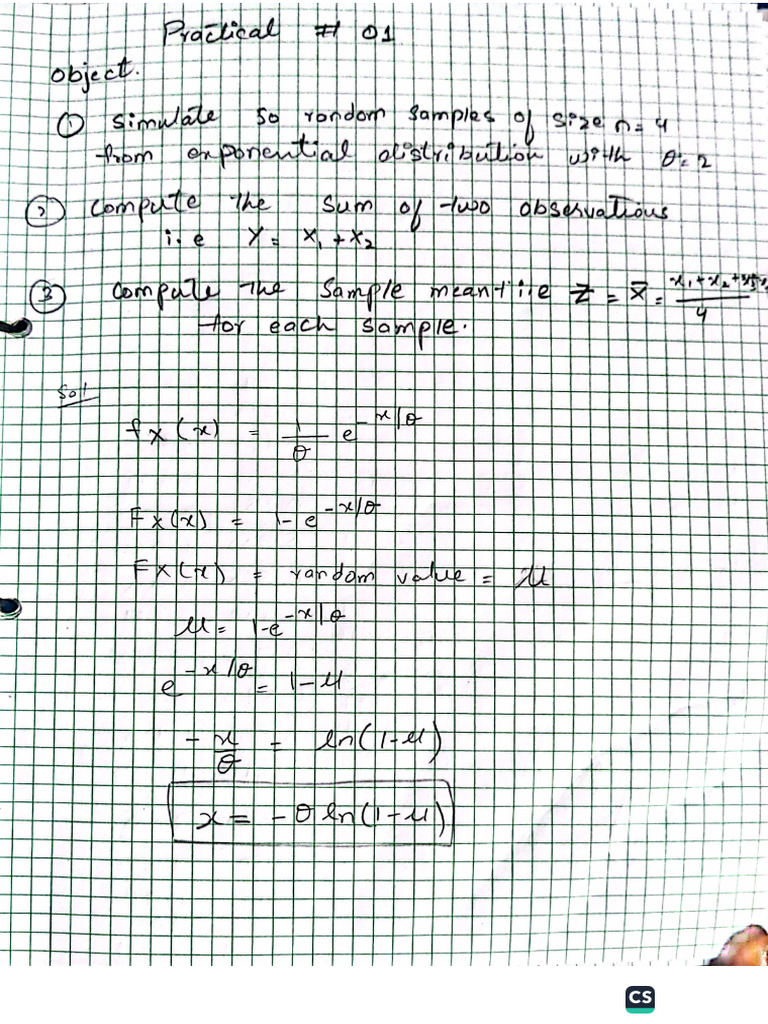 Practical # 01
object.
① simulate 50 random samples of size n=4
from exponential distribution with θ=2
② compute the sum of two observations
i.e Y = X₁ + X₂
③ compute the sample mean i.e Z = X̄ = x₁ + x₂ + x₃ + x₄ / 4
for each sample.
Sol
fx(x) = 1/θ e^-x/θ
Fx(x) = 1 - e^-x/θ
Fx(x) = random value = u
u = 1-e^-x/θ
e^-x/θ = 1-u
-x/θ = ln(1-u)
x = -θ ln(1-u)
CS